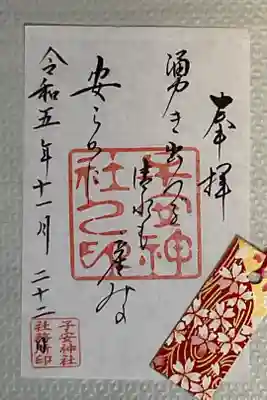 奉拝
湧き出つる
清水も産
安ら
令和五年十一月二十二日
子安神
社之印
子安神社
社務所印